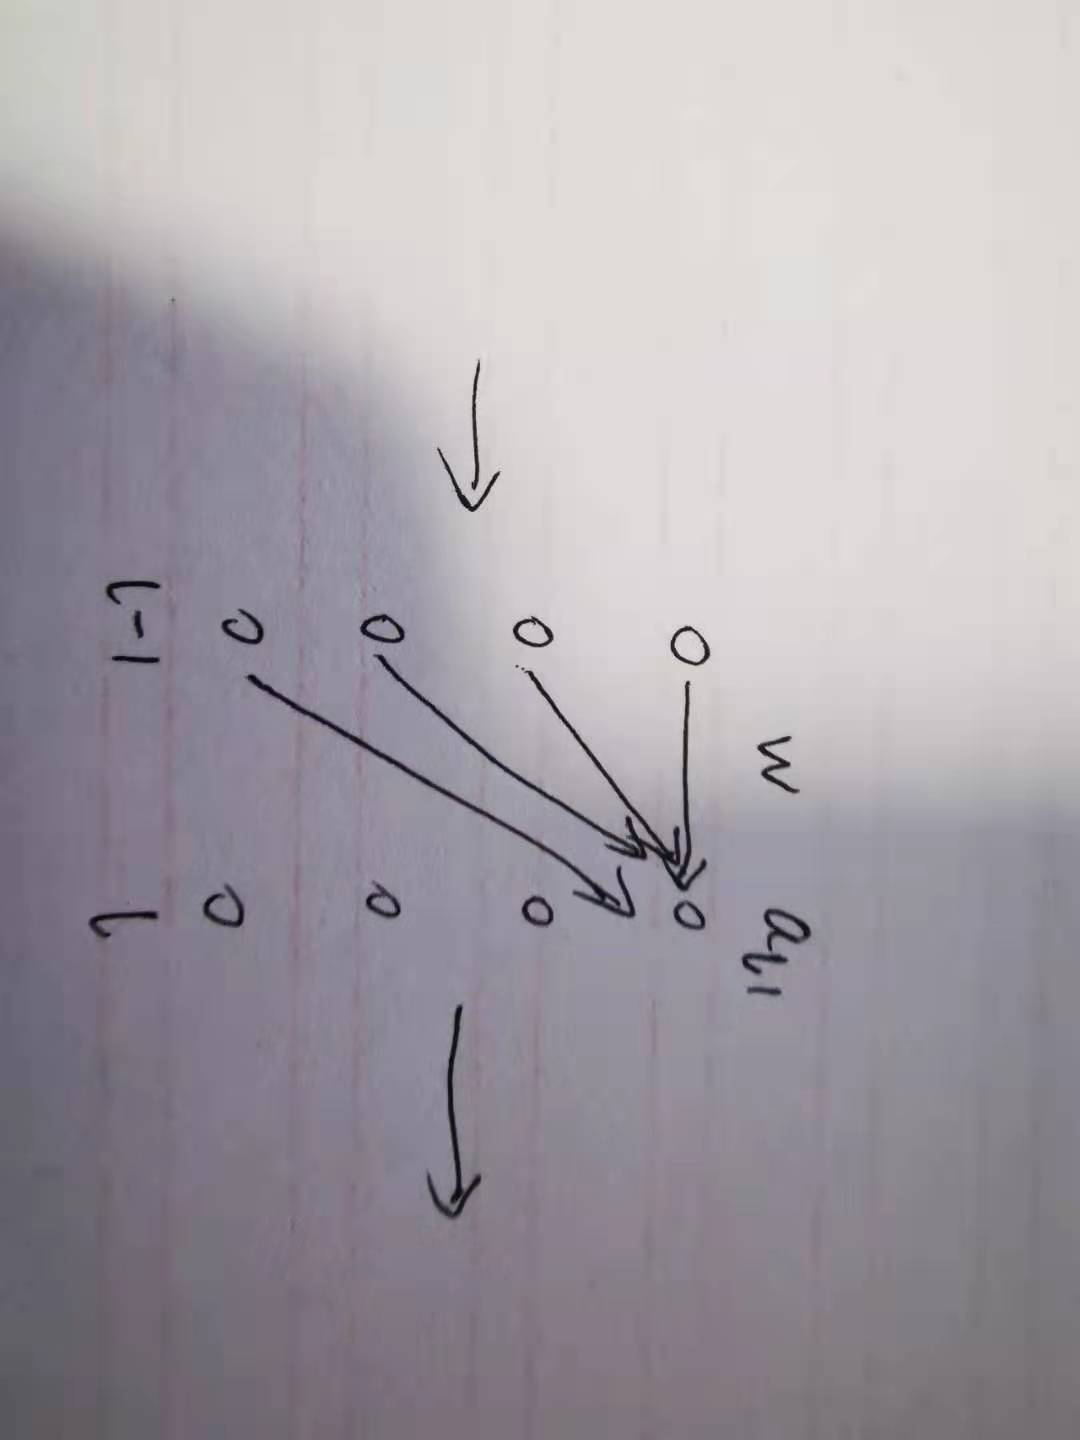 w a_l1
l-1 l